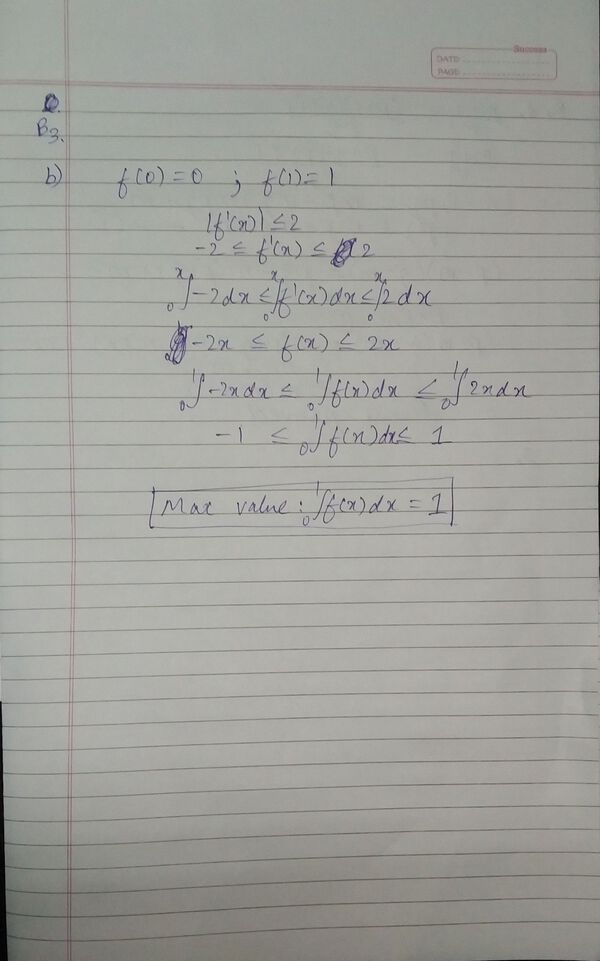 Success
DATE
PAGE
B3.
b) f(0) = 0 ; f(1) = 1
|f'(x)| ≤ 2
-2 ≤ f'(x) ≤ 2
₀∫ˣ -2dx ≤ ₀∫ˣ f'(x)dx ≤ ₀∫ˣ 2dx
-2x ≤ f(x) ≤ 2x
₀∫¹ -2xdx ≤ ₀∫¹ f(x)dx ≤ ₀∫¹ 2xdx
-1 ≤ ₀∫¹ f(x)dx ≤ 1
Max value : ₀∫¹ f(x)dx = 1